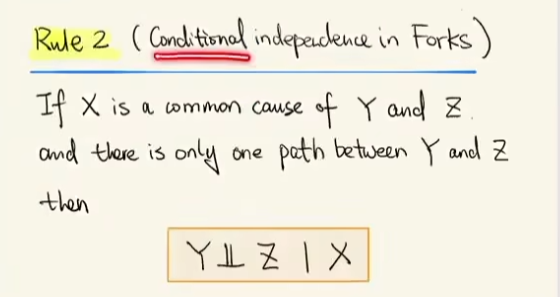 Rule 2 (Conditional independence in Forks)
If X is a common cause of Y and Z.
and there is only one path between Y and Z
then
Y ⫫ Z | X